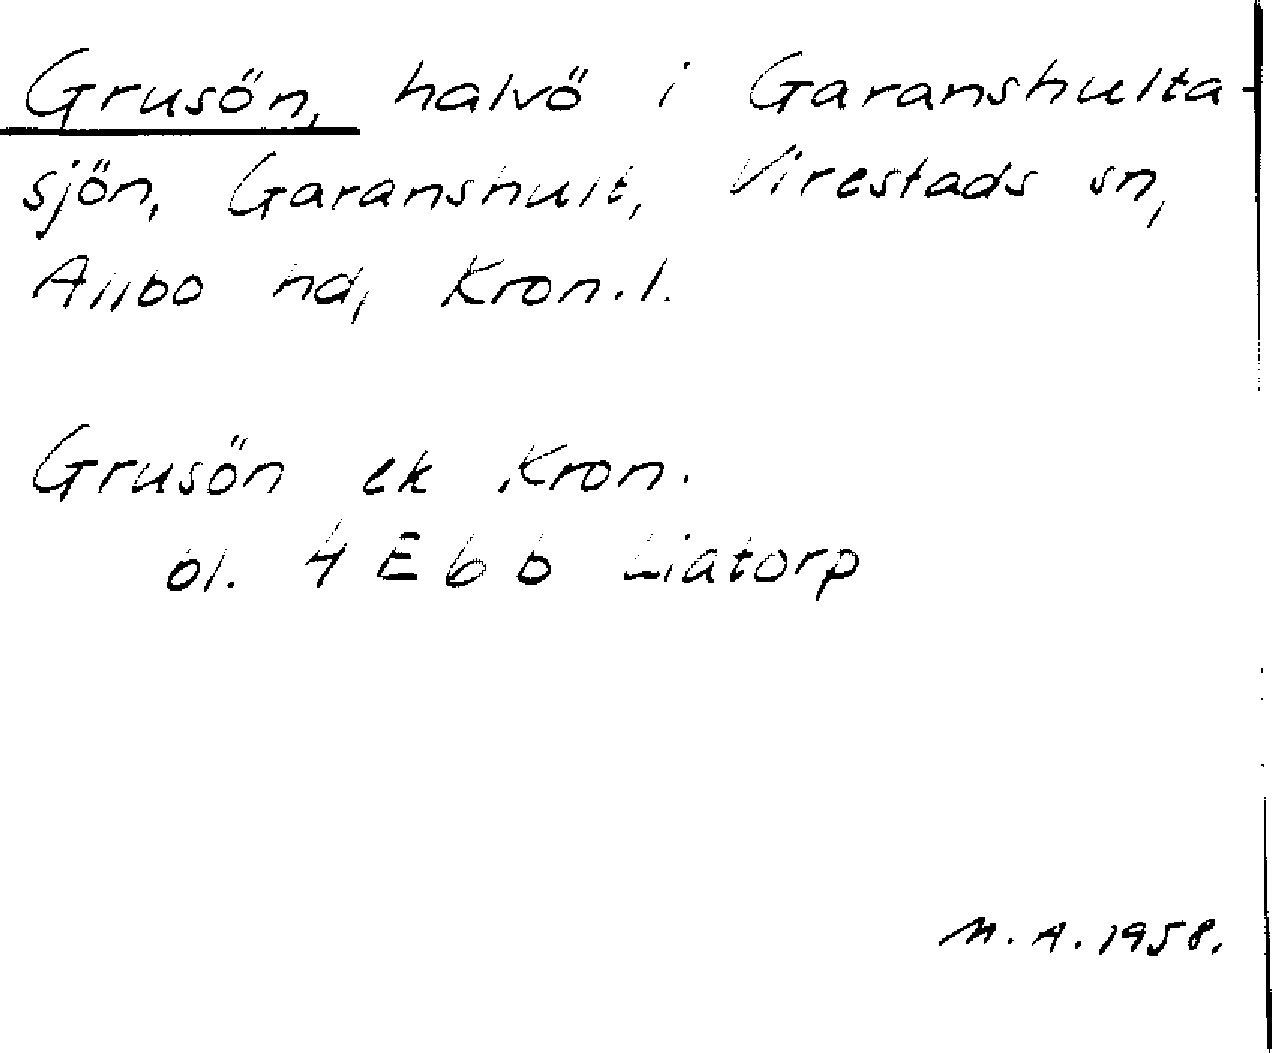 Grusön, halvö i Garanshulta-
sjön, Garanshult, Virestads sn,
Allbo hd, Kron. l.
Grusön ek Kron.
bl. 4 E 6 b Liatorp
M. A. 1958.